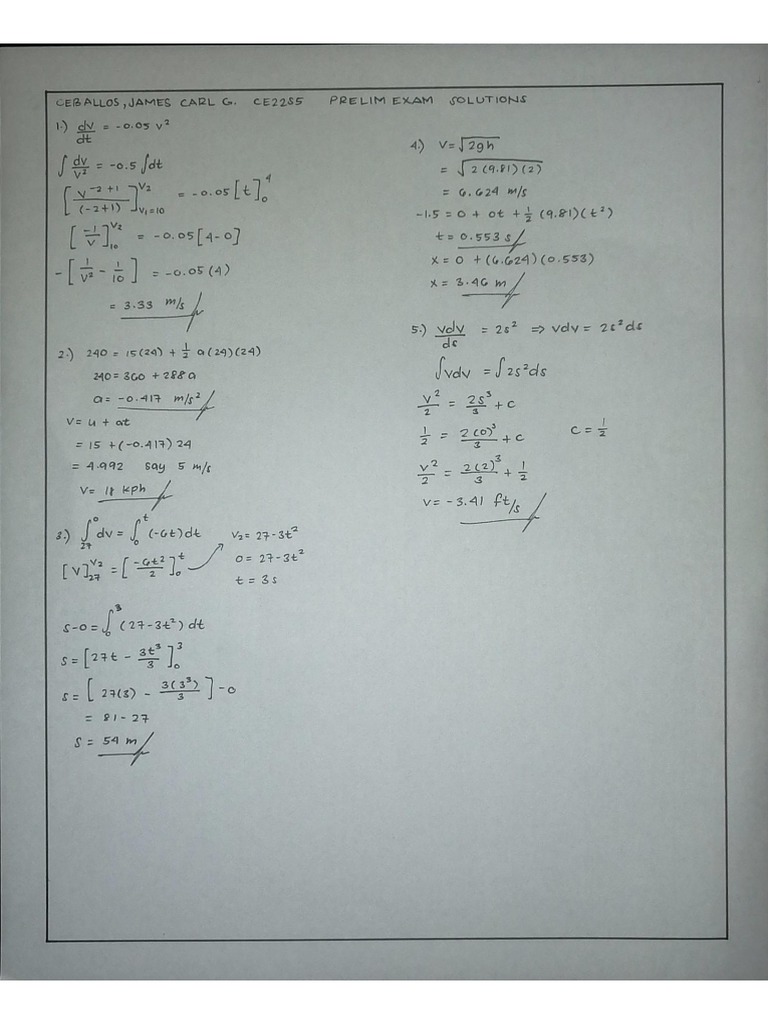 CEBALLOS, JAMES CARL G. CE22S5 PRELIM EXAM SOLUTIONS
1.) dv/dt = -0.05 v²
∫ dv/v² = -0.5 ∫dt
[ v^(-2+1) / (-2+1) ]_(v₁=10)^(v₂) = -0.05 [t]_0^4
[ -1/v ]_10^(v₂) = -0.05 [4-0]
-[ 1/v² - 1/10 ] = -0.05 (4)
= 3.33 m/s
2.) 240 = 15(24) + ½ a(24)(24)
240 = 360 + 288a
a = -0.417 m/s²
V = u + at
= 15 + (-0.417) 24
= 4.992 say 5 m/s
V = 18 kph
3.) ∫_27^0 dv = ∫_0^t (-6t)dt
[V]_27^(v₂) = [ -6t²/2 ]_0^t
V₂ = 27-3t²
0 = 27-3t²
t = 3s
s-0 = ∫_0^3 (27-3t²) dt
s = [27t - 3t³/3]_0^3
s = [ 27(3) - 3(3³)/3 ] -0
= 81-27
S = 54 m
4.) V = √2gh
= √2(9.81)(2)
= 6.624 m/s
-1.5 = 0 + 0t + ½ (9.81)(t²)
t = 0.553 s
x = 0 + (6.624)(0.553)
x = 3.46 m
5.) vdv/ds = 2s² => vdv = 2s²ds
∫vdv = ∫2s²ds
v²/2 = 2s³/3 + c
½ = 2(0)³/3 + c c = ½
v²/2 = 2(2)³/3 + ½
v = -3.41 ft/s